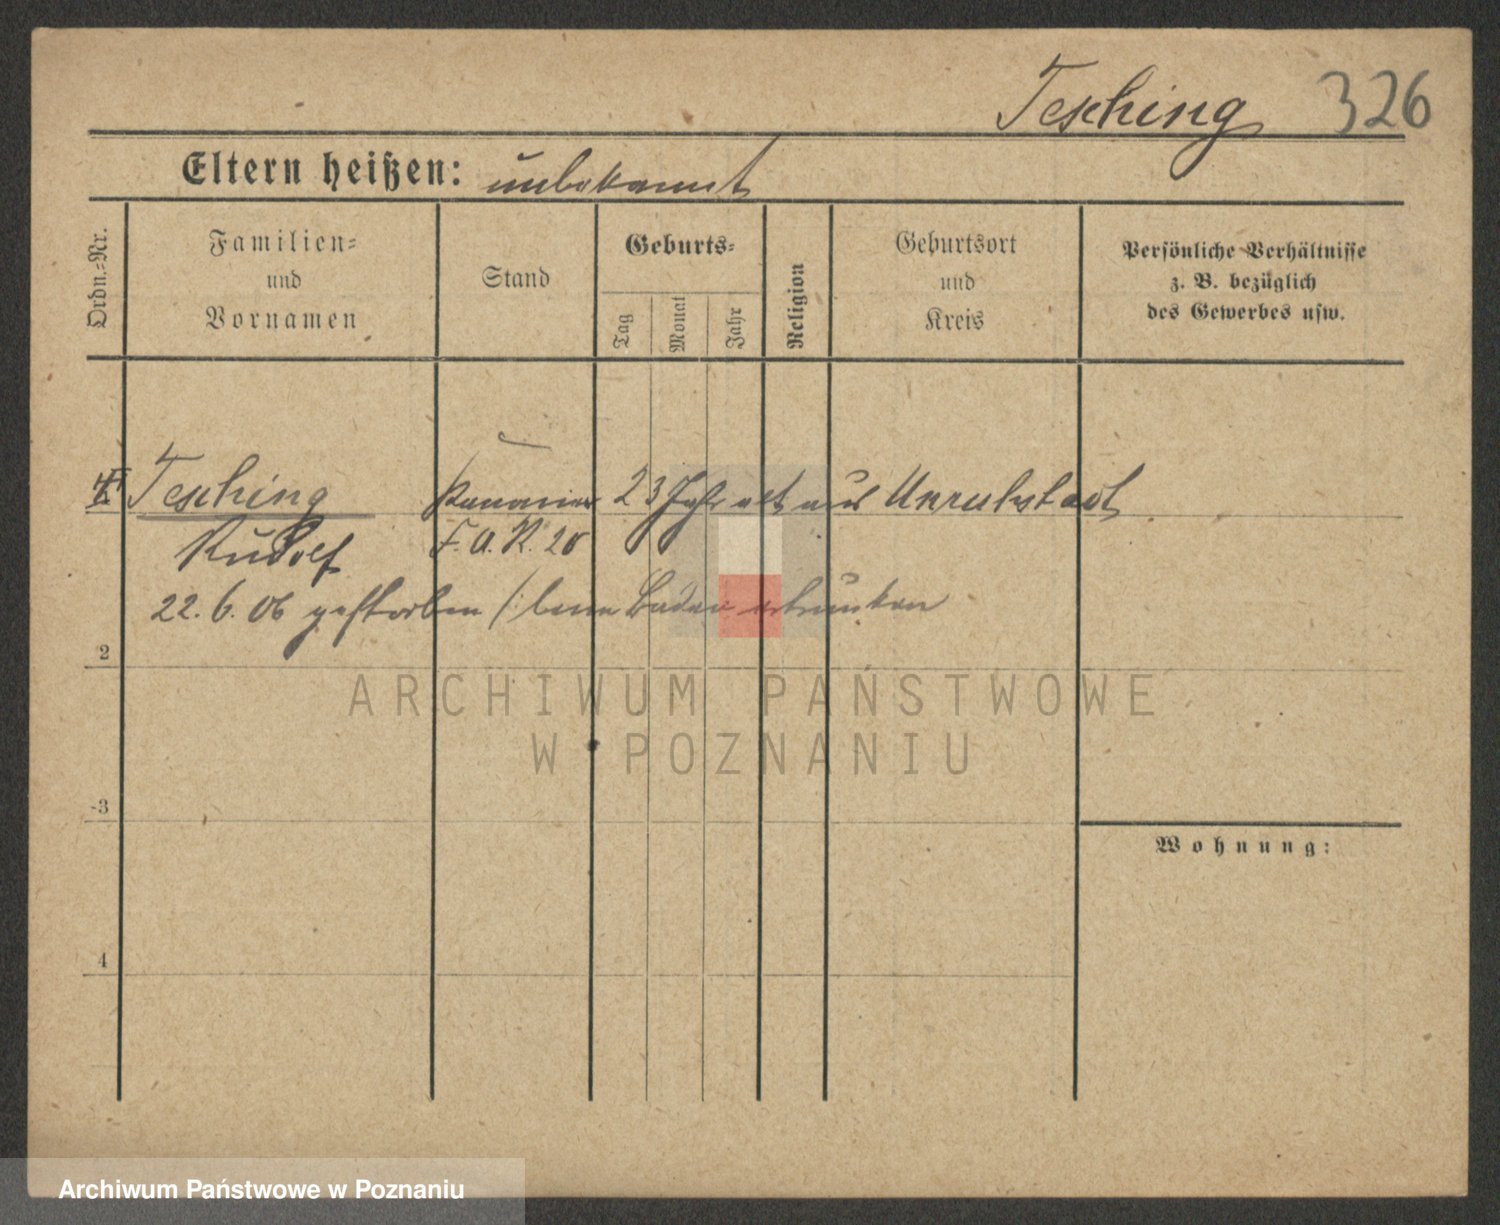 Tesching 326
Eltern heißen: unbekannt
Ordn.-Nr.
Familien-
und
Vornamen
Stand
Geburts-
Tag
Monat
Jahr
Religion
Geburtsort
und
Kreis
Persönliche Verhältnisse
z. B. bezüglich
des Gewerbes usw.
Tesching Kanonier 23 Jahr alt aus Unruhstadt
Rudolf F. A. R. 20
22. 6. 06 gestorben /: beim Baden ertrunken
2
3
4
Wohnung:
ARCHIWUM PAŃSTWOWE
W POZNANIU
Archiwum Państwowe w Poznaniu